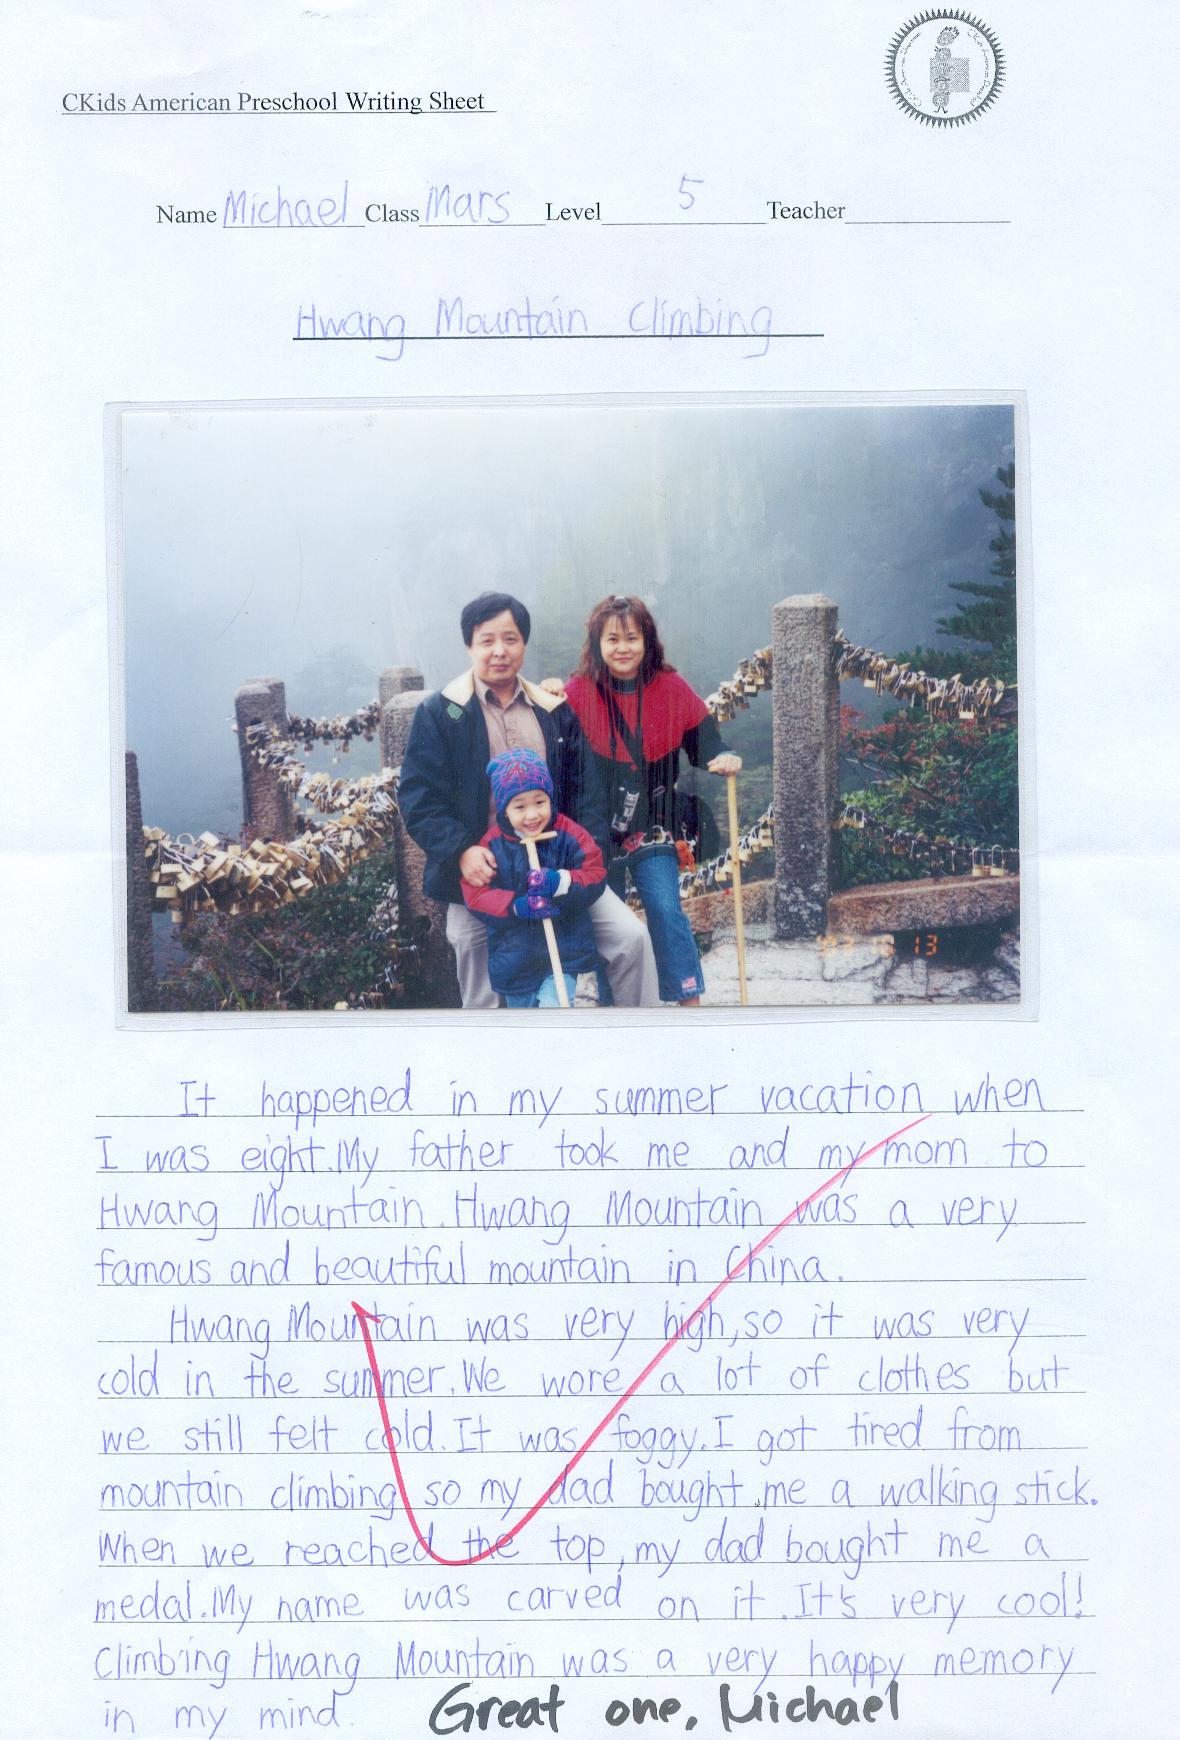 CKids American Preschool Writing Sheet
Name Michael Class Mars Level 5 Teacher
Hwang Mountain Climbing
13
It happened in my summer vacation when
I was eight. My father took me and my mom to
Hwang Mountain. Hwang Mountain was a very
famous and beautiful mountain in China.
Hwang Mountain was very high, so it was very
cold in the summer. We wore a lot of clothes but
we still felt cold. It was foggy. I got tired from
mountain climbing so my dad bought me a walking stick.
When we reached the top, my dad bought me a
medal. My name was carved on it. It's very cool!
Climbing Hwang Mountain was a very happy memory
in my mind. Great one, Michael